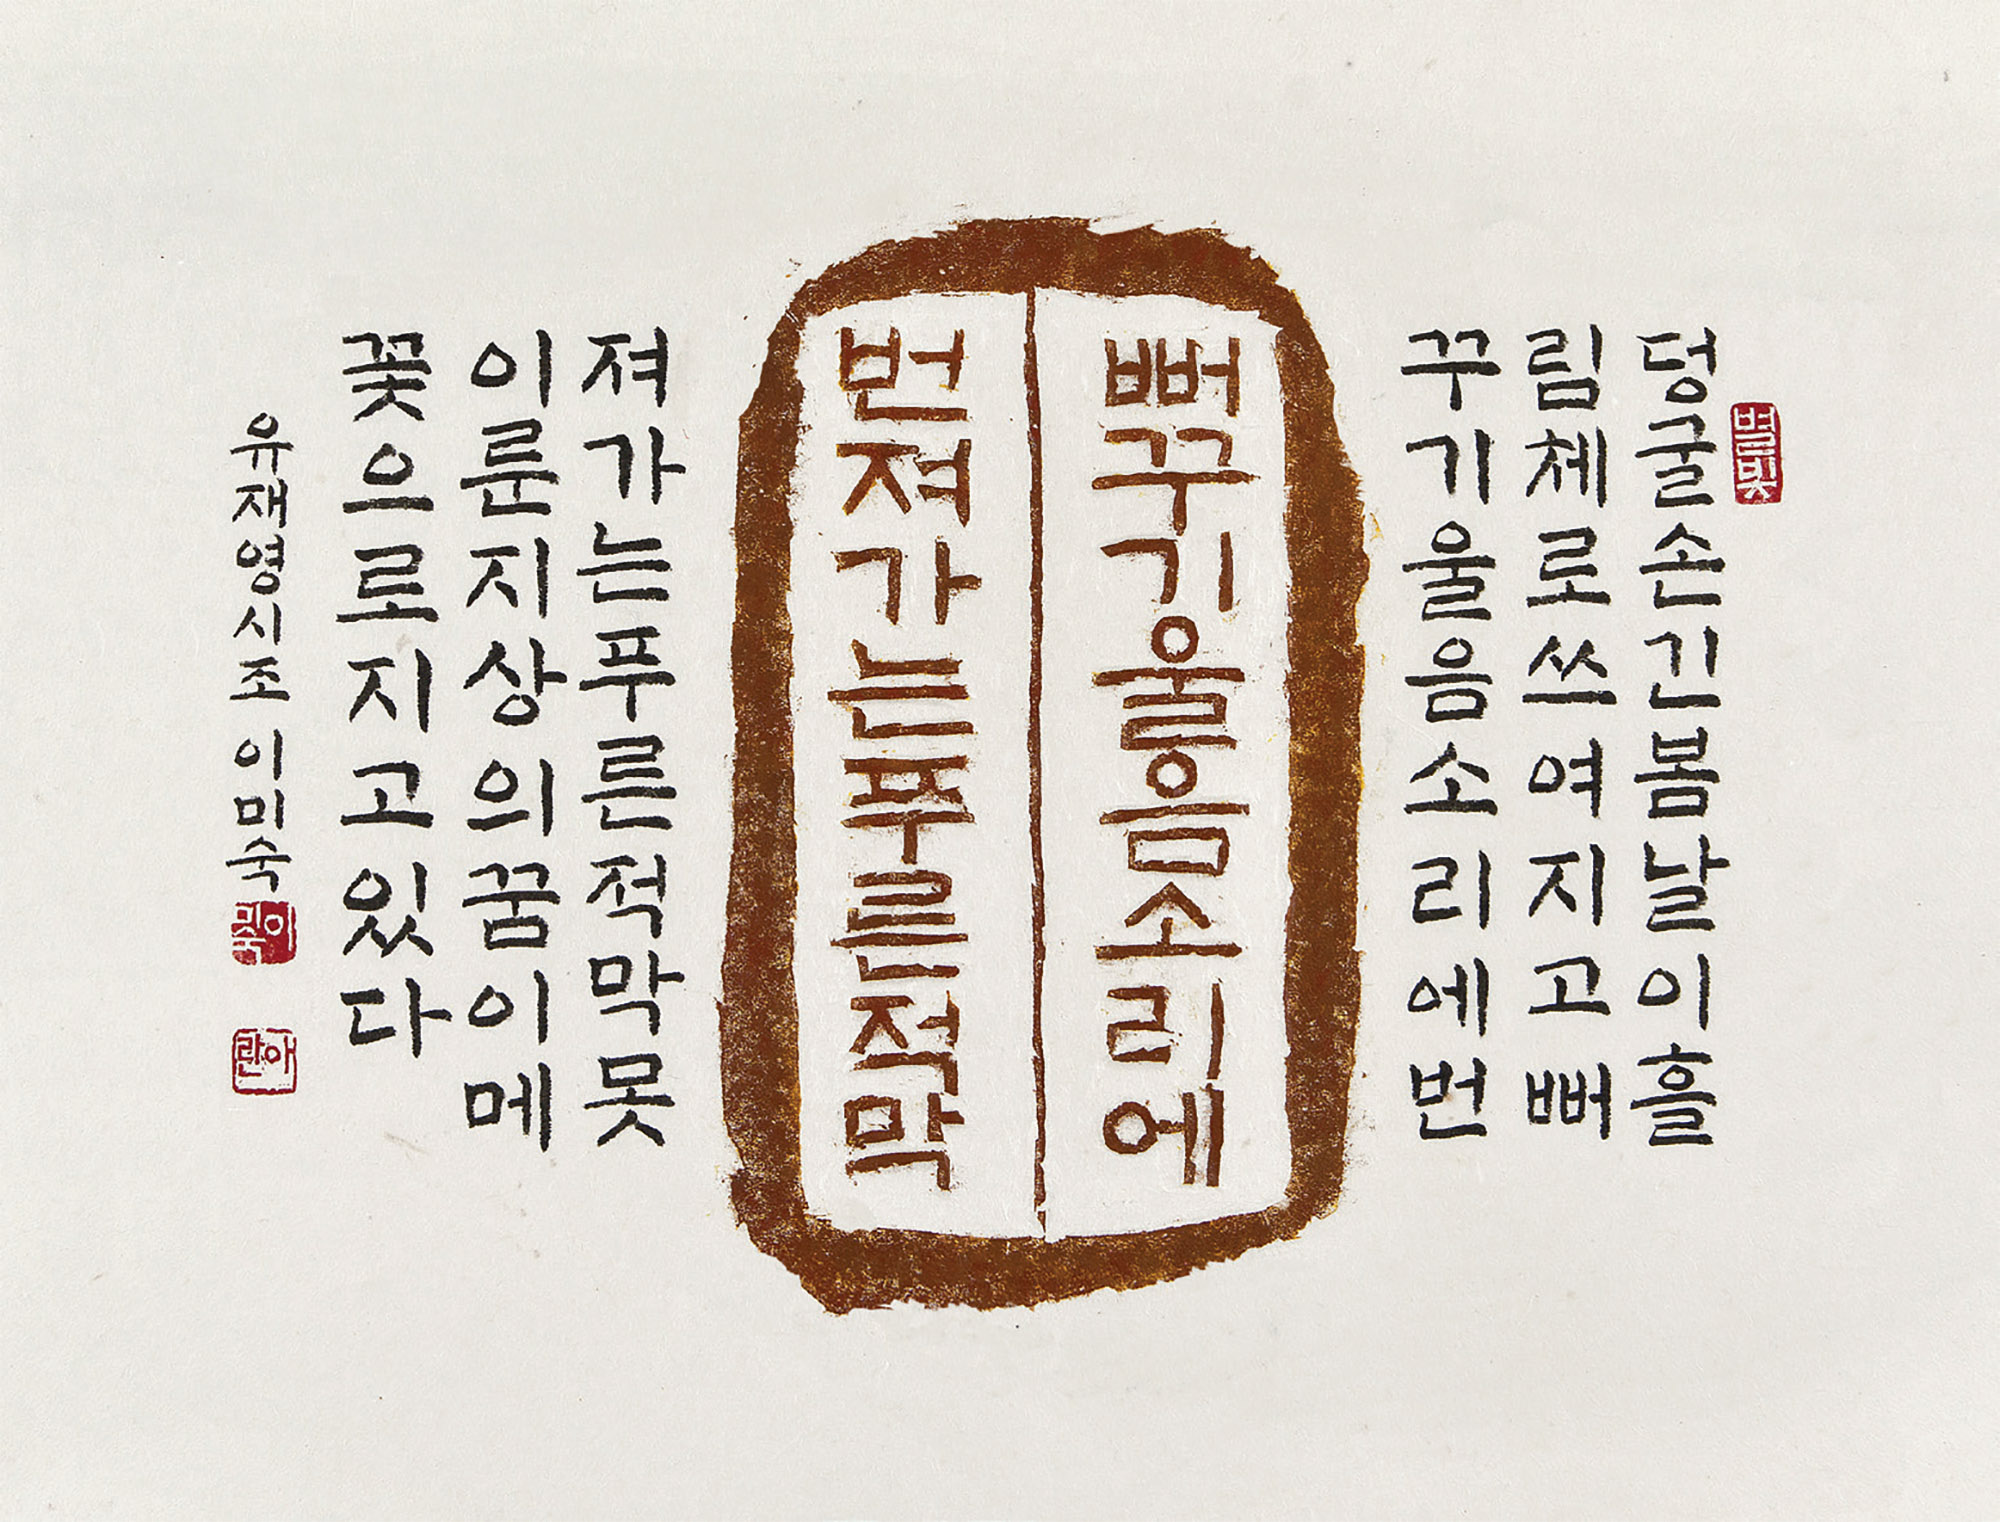 별빛
덩굴손긴봄날이흘
림체로쓰여지고뻐
꾸기울음소리에번
뻐꾸기울음소리에
번져가는푸른적막
져가는푸른적막못
이룬지상의꿈이메
꽃으로지고있다
유재영시조 이미숙
이미숙
아란